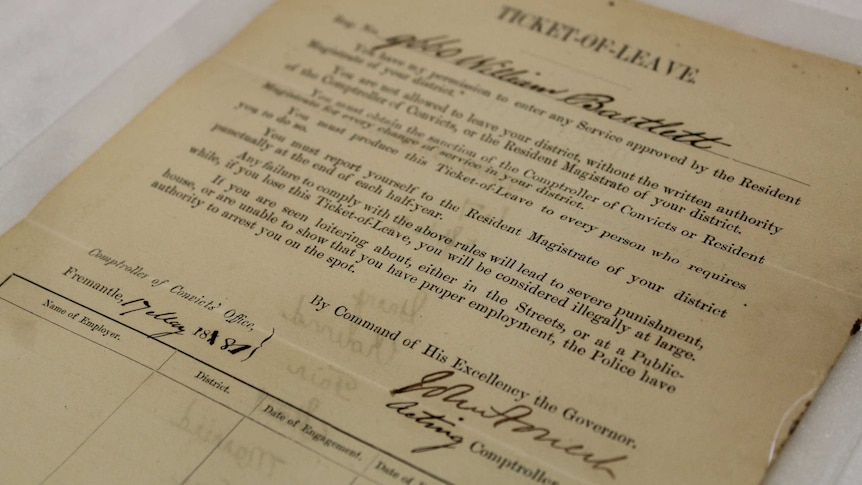 TICKET-OF-LEAVE
Reg. No. William Bartlett
You have my permission to enter any Service approved by the Resident
Magistrate of your district.
You are not allowed to leave your district, without the written authority
of the Comptroller of Convicts, or the Resident Magistrate of your district.
You must obtain the sanction of the Comptroller of Convicts or Resident
Magistrate for every change of service in your district.
You must produce this Ticket-of-Leave to every person who requires
you to do so.
You must report yourself to the Resident Magistrate of your district
punctually at the end of each half-year.
Any failure to comply with the above rules will lead to severe punishment,
while, if you lose this Ticket-of-Leave, you will be considered illegally at large.
If you are seen loitering about, either in the Streets, or at a Public-
house, or are unable to show that you have proper employment, the Police have
authority to arrest you on the spot.
By Command of His Excellency the Governor.
John
Acting Comptroller
Comptroller of Convicts' Office,
Fremantle, 17 May 1887
Name of Employer.
District.
Date of Engagement.
Date of